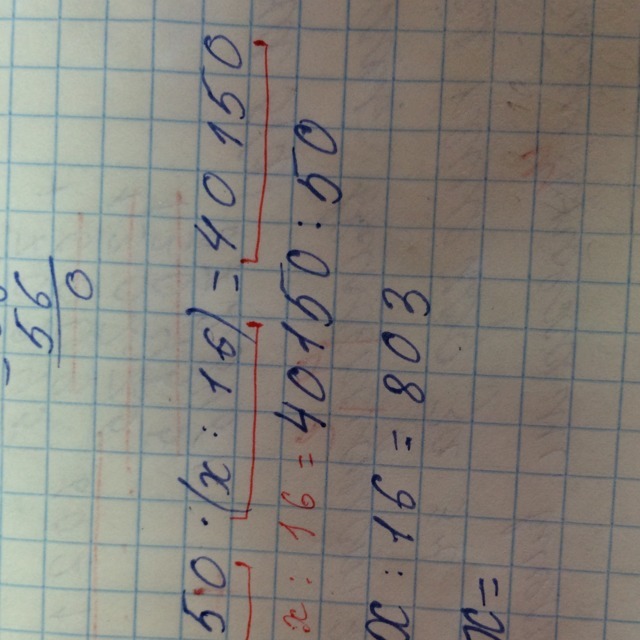 56
0
50 · (x : 16) = 40 150
x : 16 = 40150 : 50
x : 16 = 803
x =